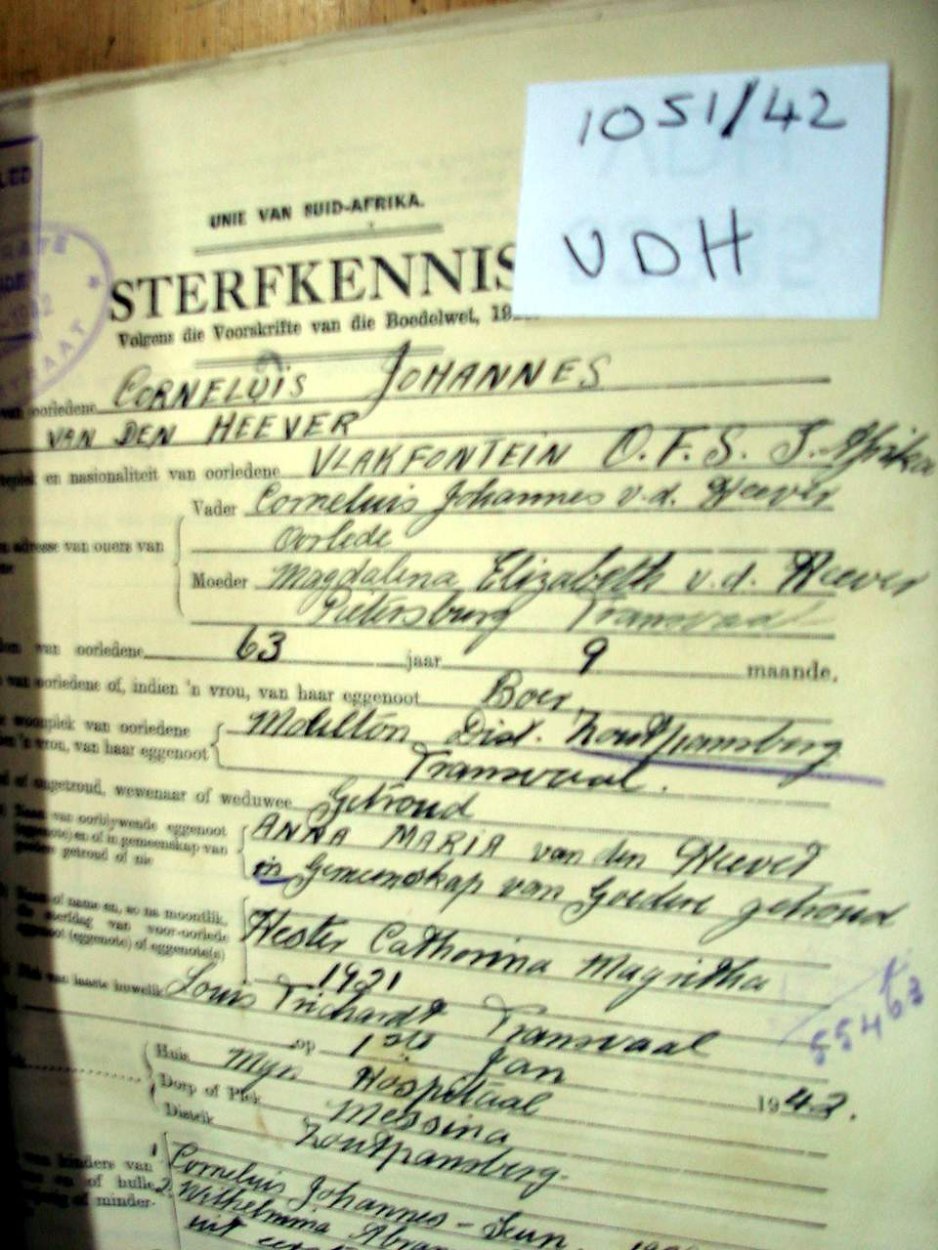 1051/42
VDH
UNIE VAN SUID-AFRIKA.
STERFKENNIS
Volgens die Voorskrifte van die Boedelwet, 19
oorledene CORNELUIS JOHANNES
VAN DEN HEEVER
en nasionaliteit van oorledene VLAKFONTEIN O.F.S. S. Afrika
Vader Corneluis Johannes v.d. Heever
Oorlede
adresse van ouers van
Moeder Magdalena Elizabeth v.d. Heever
Pietersburg Transvaal
van oorledene 63 jaar 9 maande.
van oorledene of, indien 'n vrou, van haar eggenoot Boer
woonplek van oorledene Dist. Zoutpansberg
'n vrou, van haar eggenoot Transvaal.
of ongetroud, wewenaar of weduwee Getroud
Naam van oorblywende eggenoot ANNA MARIA van den Heever
(eggenote) en of in gemeenskap van
goedere getroud of nie in Gemeenskap van Goedere getroud
of name en, so na moontlik,
sterfdag van voor-oorlede Hester Catherina Magritha
eggenoot (eggenote) of eggenote(s)
1921
laaste huwelik Louis Trichardt Transvaal
op 1ste Jan 1942.
Huis Myn Hospitaal
Dorp of Plek Messina
Distrik Zoutpansberg.
55463
kinders van 1 Corneluis Johannes - Seun
of hulle 2. Wilhelmina
of minder- uit